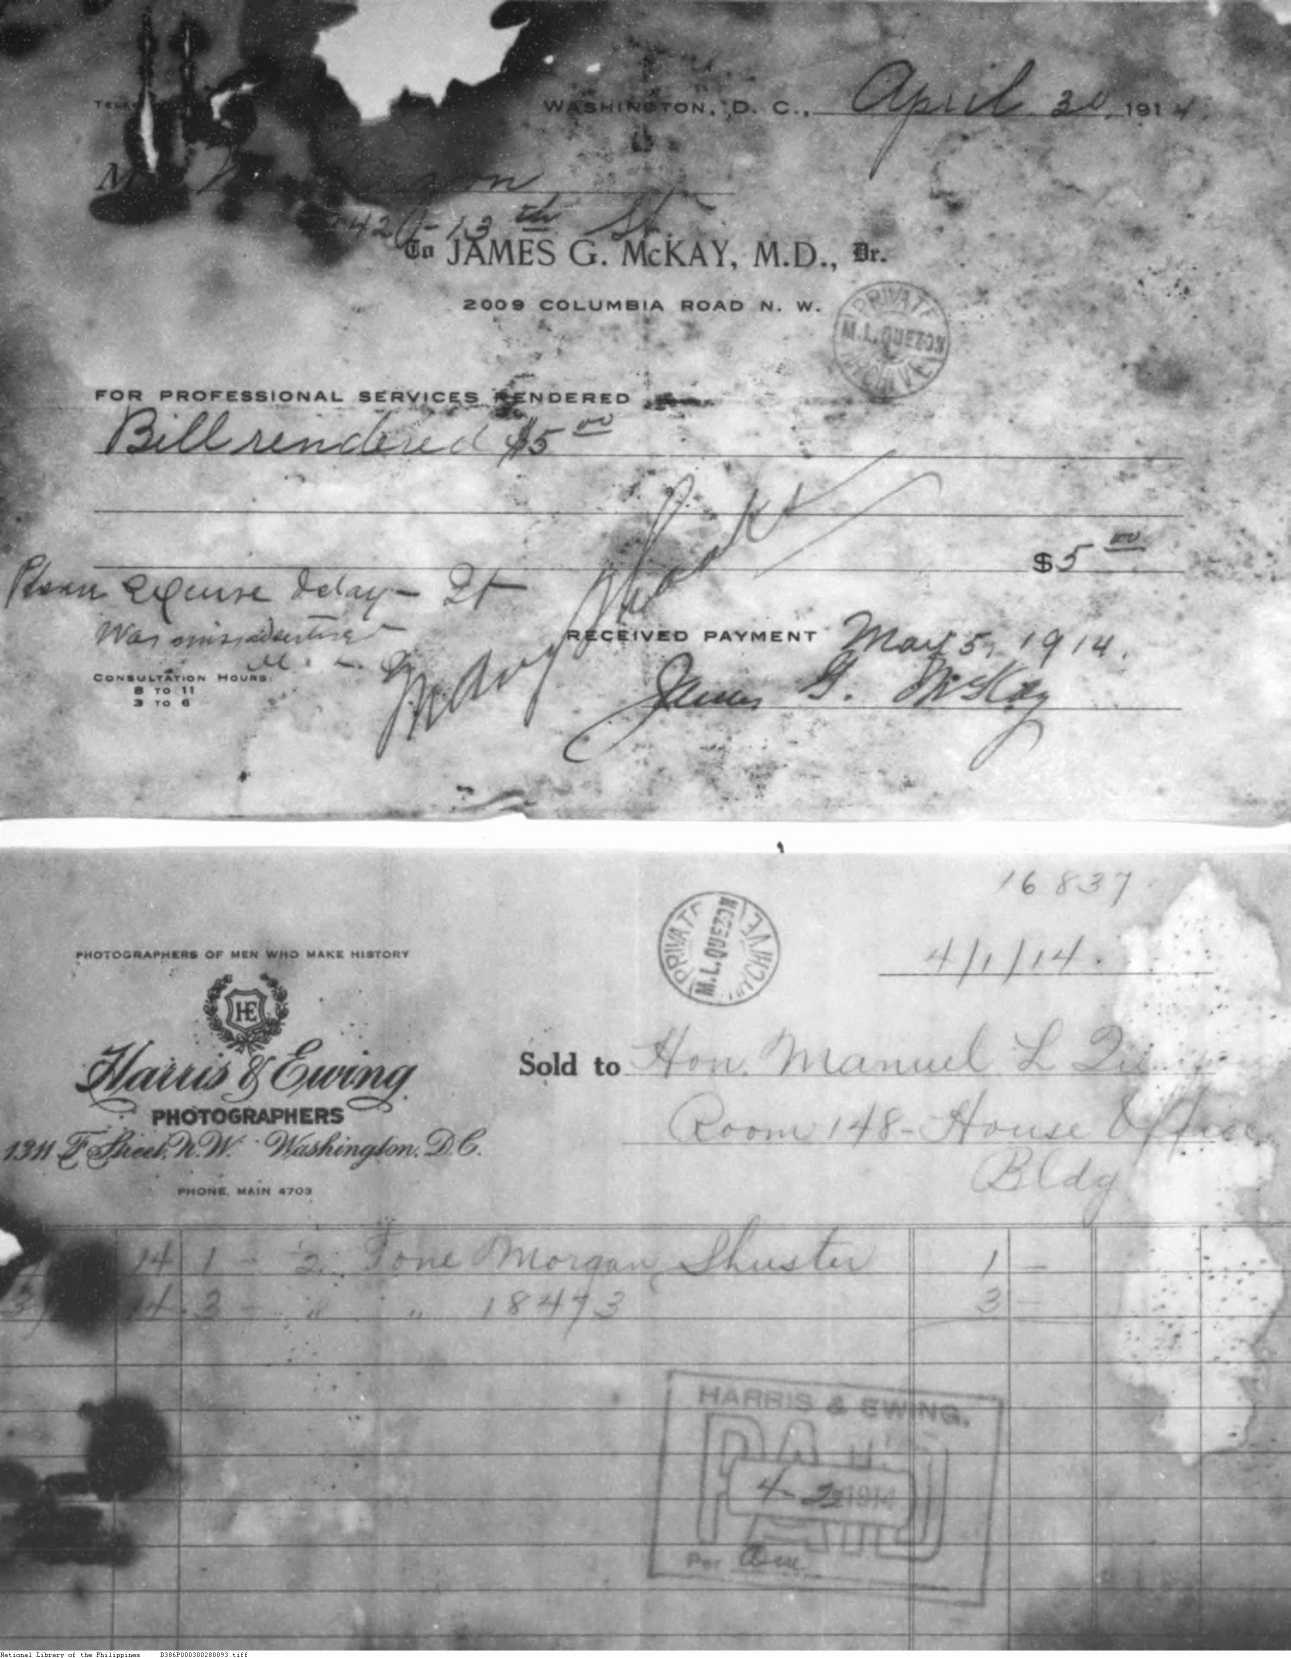 WASHINGTON, D. C., April 30 1914
M
1420-13th St
To JAMES G. McKAY, M.D., Dr.
2009 COLUMBIA ROAD N. W.
PRIVATE
M.L. QUEZON
ARCHIVE
FOR PROFESSIONAL SERVICES RENDERED
Bill rendered $5 00
$5 00
Please excuse delay - It
Was
Many Thanks
RECEIVED PAYMENT May 5, 1914.
James G. McKay
CONSULTATION HOURS:
8 TO 11
3 TO 6
16837
4/1/14.
PRIVATE
M.L. QUEZON
ARCHIVE
PHOTOGRAPHERS OF MEN WHO MAKE HISTORY
HE
Harris & Ewing
PHOTOGRAPHERS
1311 F Street, N.W. Washington, D.C.
PHONE, MAIN 4703
Sold to Hon. Manuel L Qu
Room 148-House Office
Bldg
14 1 - 2 Tone Morgan Shuster 1 -
3 14 3 - " " 18473 3 -
HARRIS & EWING.
PAID
4- 1914
Per
National Library of the Philippines B386P000300280093.tiff